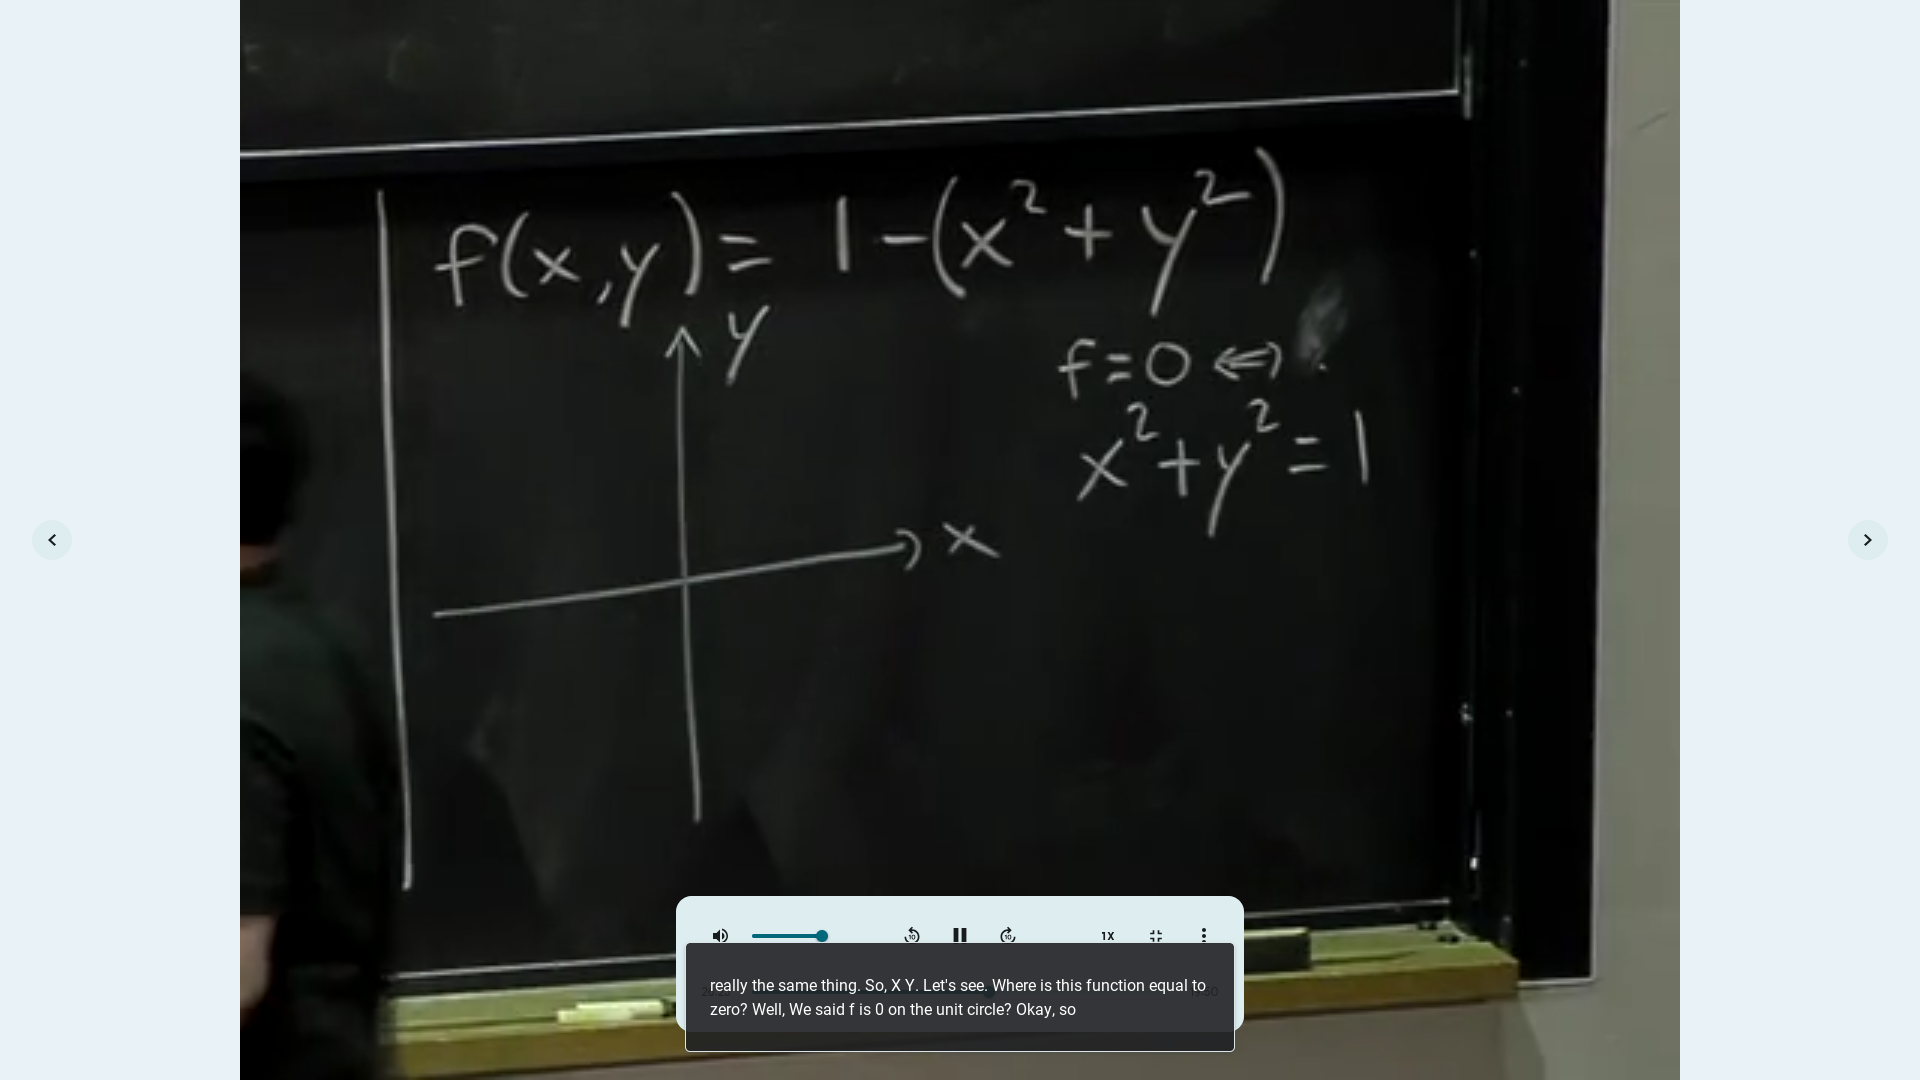 f(x,y) = 1-(x²+y²)
y
f=0 ⟺
x²+y²=1
x
1X
really the same thing. So, X Y. Let's see. Where is this function equal to
zero? Well, We said f is 0 on the unit circle? Okay, so